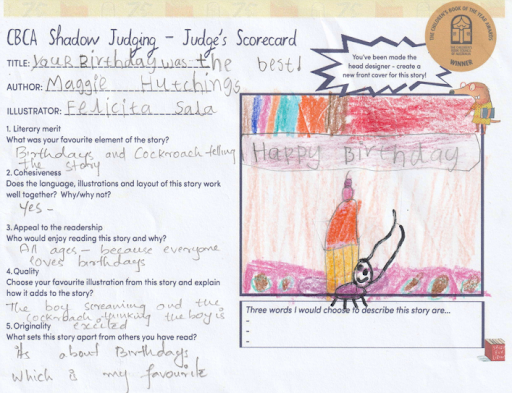 CBCA Shadow Judging - Judge's Scorecard
TITLE: Your Birthday was the best!
AUTHOR: Maggie Hutchings
ILLUSTRATOR: Felicita Sala
1. Literary merit
What was your favourite element of the story?
Birthdays and Cockroach telling
the story
2. Cohesiveness
Does the language, illustrations and layout of this story work
well together? Why/why not?
Yes -
3. Appeal to the readership
Who would enjoy reading this story and why?
All ages - because everyone
loves birthdays
4. Quality
Choose your favourite illustration from this story and explain
how it adds to the story?
The boy screaming and the
cockroach thinking the boy is
excited
5. Originality
What sets this story apart from others you have read?
Its about Birthdays
which is my favourite
You've been made the
head designer - create a
new front cover for this story!
WINNER
Happy Birthday
Three words I would choose to describe this story are...
-
-
-